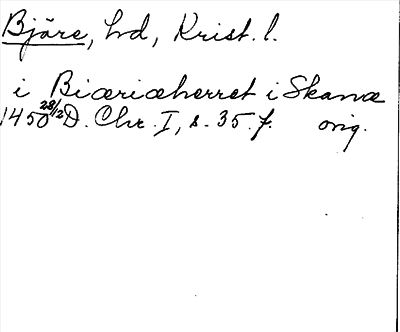 Bjäre, hd, Krist. l.
i Biæriæherret i Skanæ
1450 28/2 D. Chr. I, s. 35. f. orig.